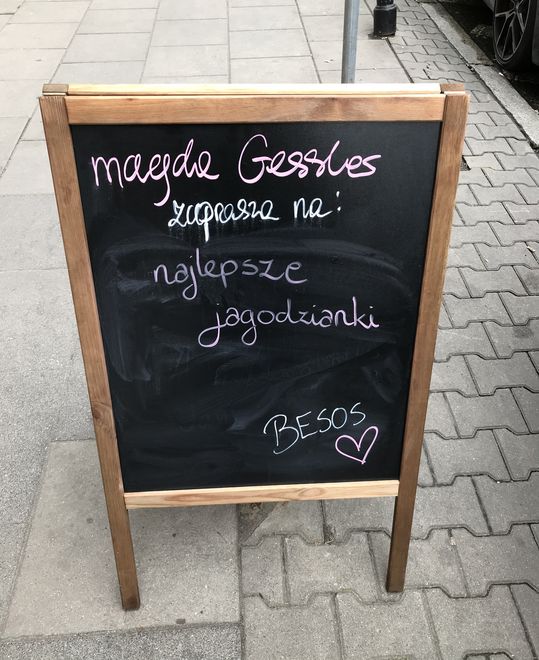 magda Gessles
zaprasza na:
najlepsze
jagodzianki
BESOS